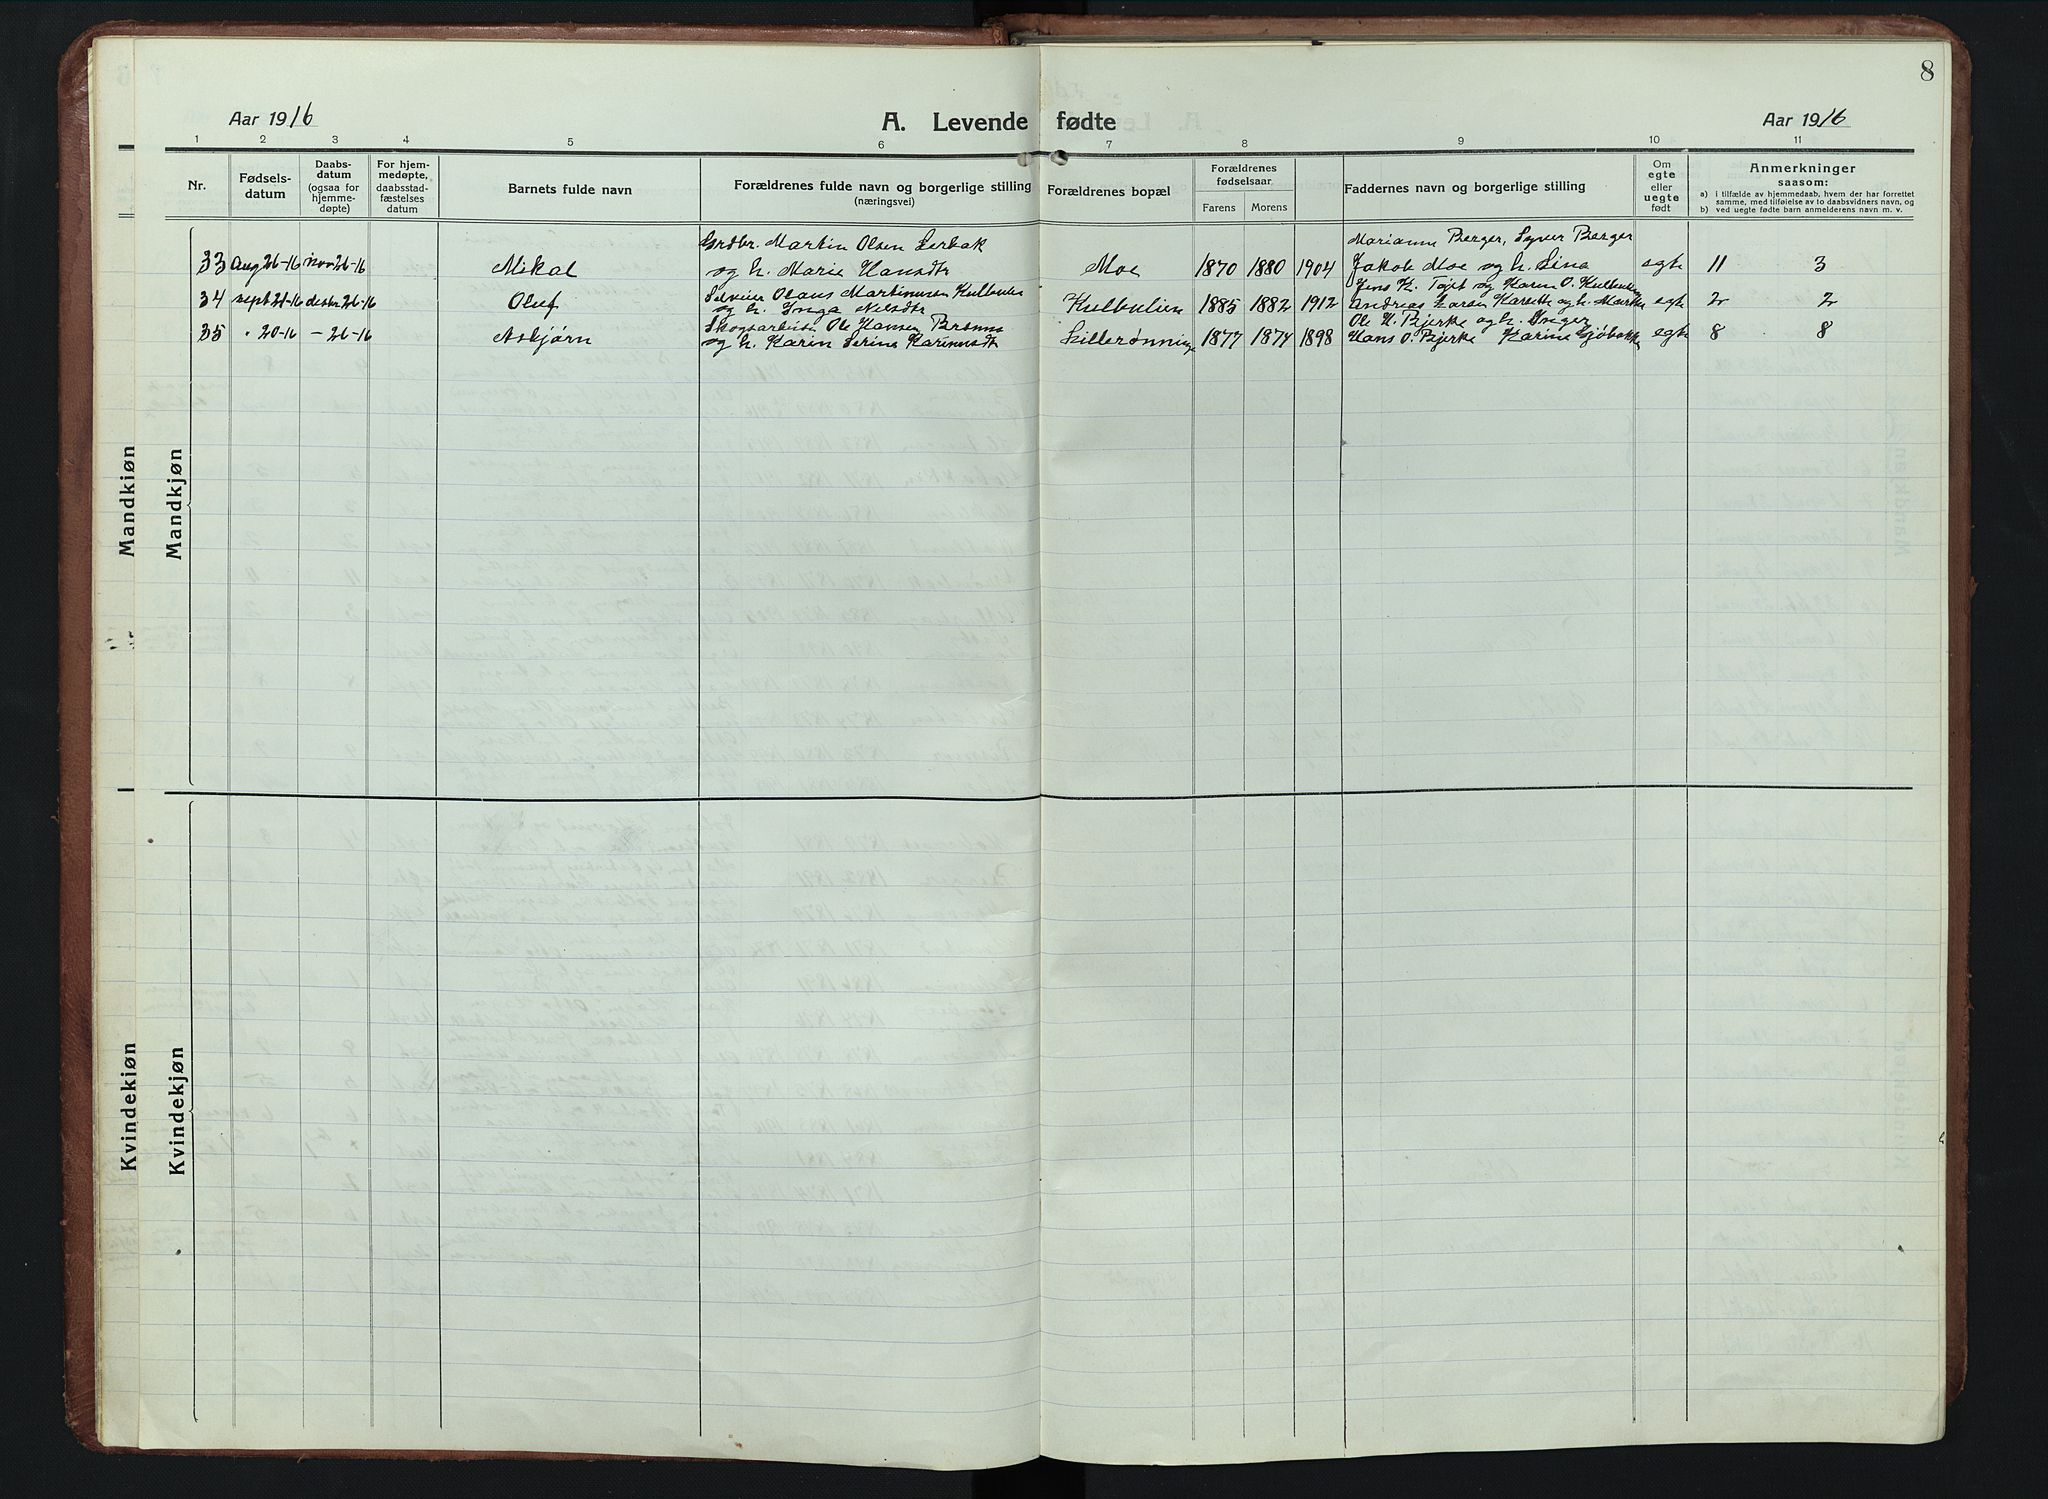 8
Aar 1916
A. Levende fødte
Aar 1916
1 2 3 4 5 6 7 8 9 10 11
Nr.
Fødsels-
datum
Daabs-
datum
(ogsaa for
hjemme-
døpte)
For hjem-
medøpte,
daabsstad-
fæstelses
datum
Barnets fulde navn
Forældrenes fulde navn og borgerlige stilling
(næringsvei)
Forældrenes bopæl
Forældrenes
fødselsaar
Farens Morens
Faddernes navn og borgerlige stilling
Om
egte
eller
uegte
født
Anmerkninger
saasom:
a) i tilfælde av hjemmedaab, hvem der har forrettet
samme, med tilføielse av to daabsvidners navn, og
b) ved uegte fødte barn anmelderens navn m. v.
Martin Olsen Marianne Berger, Syver Berger
33 Aug 26-16 Nov 26-16 Mikal og h. Marie Hansdtr Moe 1870 1880 1904 Jakob Moe og h. Lina egte 11 3
Selveier Olaus Martinusen Kulbulien Jens K. og Karen O. Kulbulien
34 sept 21-16 desbr 26-16 Oluf og h. Inga Nilsdtr Kulbulien 1885 1882 1912 Andreas Larsen og h. egte 2 2
Skogsarbeider Ole Hansen Ole H. Bjerke og h. Inger
35 " 20-16 - 26-16 Asbjørn og h. Karen Serine Lillerønningen 1877 1874 1898 Hans O. Bjerke Karine egte 8 8
Mandkjøn
Mandkjøn
Kvindekjøn
Kvindekjøn